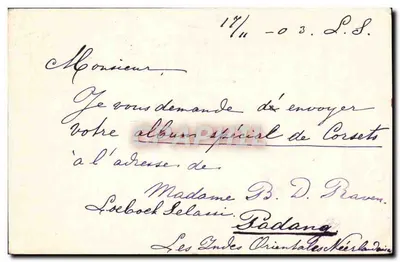 17/11 - 03. L. S.
Monsieur,
Je vous demande d'envoyer
votre album spécial de Corsets
à l'adresse de
Madame B. D. Raven.
Loeboek Selasi
Padang
Les Indes Orientales Néerlandaises